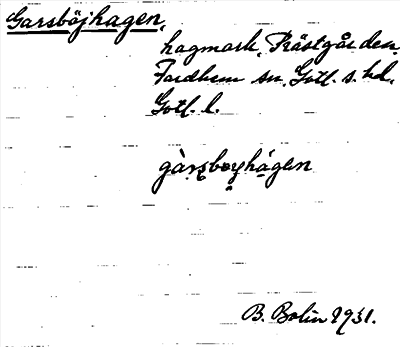 Garsböjhagen,
hagmark, Prästgården,
Fardhem sn. Gotl. s. hd.
Gotl. l.
gàrsbǫyhágen
B. Bolin 1931.